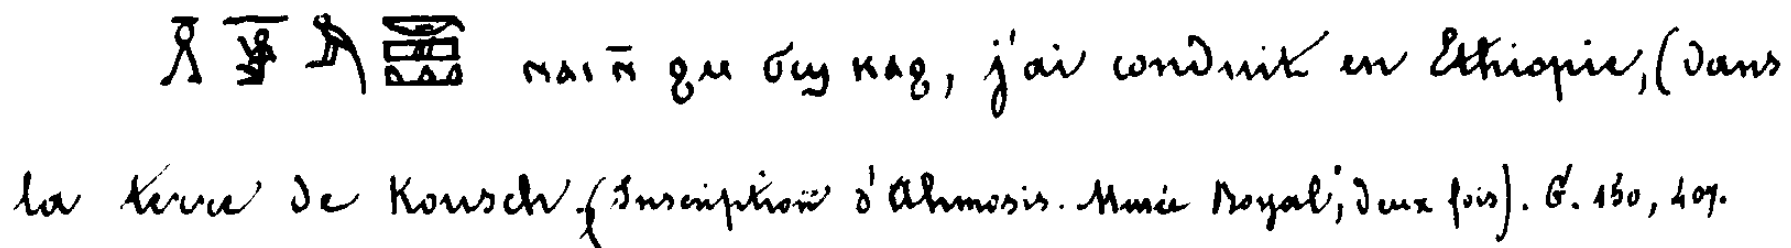 ⲛⲁⲓⲛ̄ ϩⲙ ϭϣ ⲕⲁϩ, j'ai conduit en Ethiopie, (dans
la terre de Kousch. (Inscription d'Ahmosis. Musée Royal; deux fois). G. 150, 407.